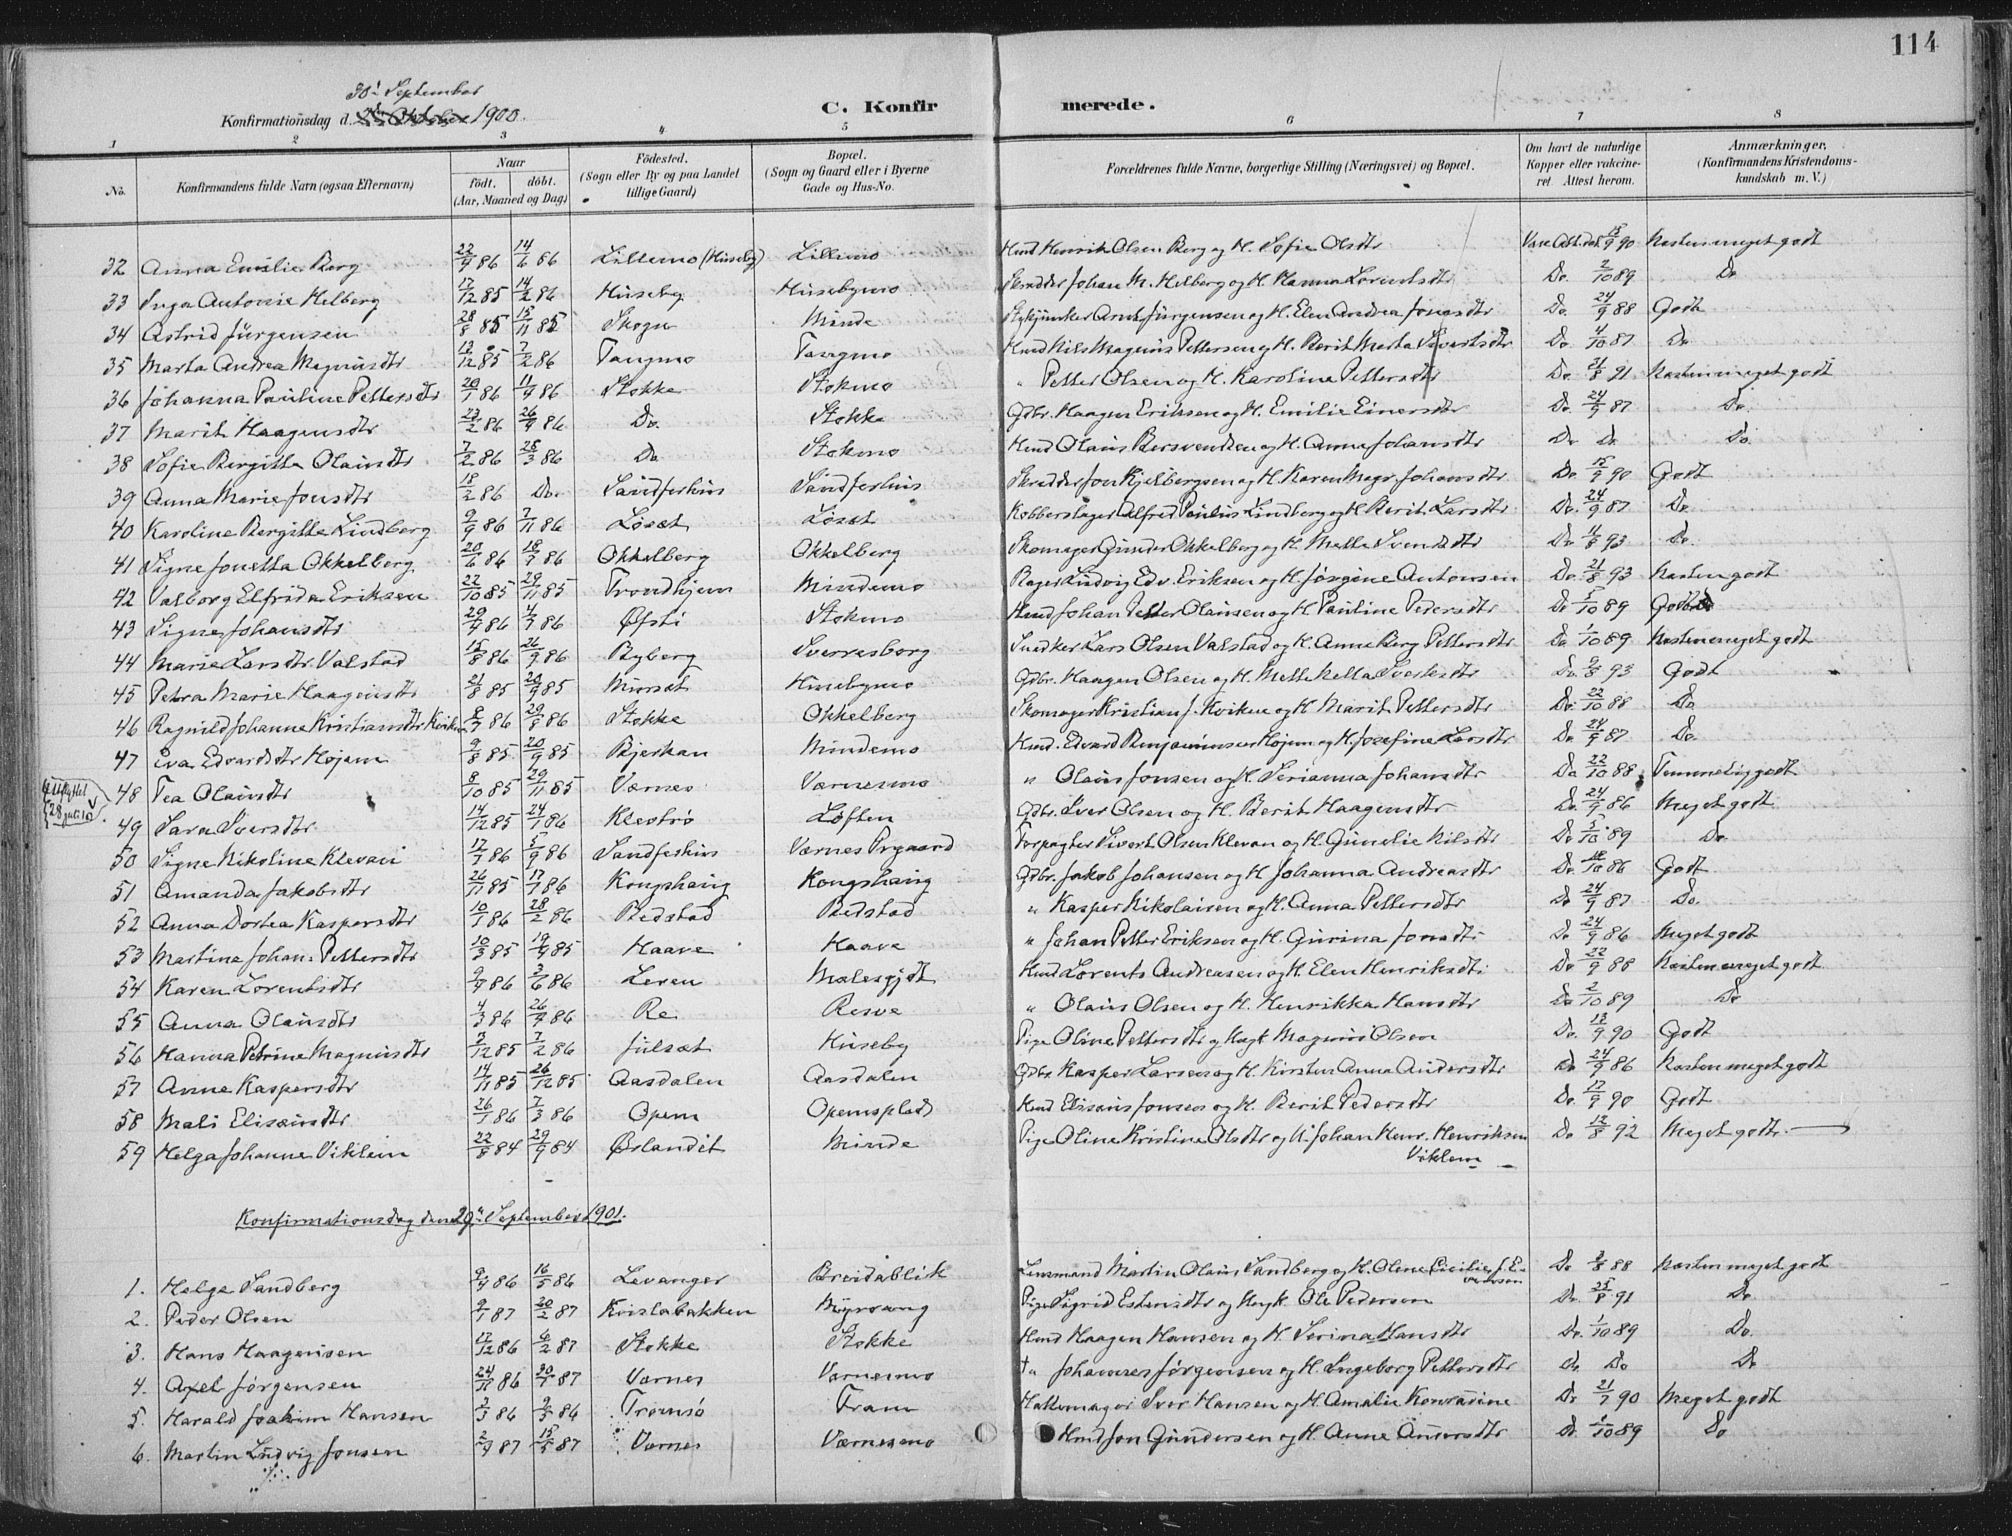 114
30' September
Konfirmationsdag d. 2den Oktober 1900.
C. Konfirmerede.
1 2 3 4 5 6 7 8
No. Konfirmandens fulde Navn (ogsaa Efternavn) Naar født. døbt. (Aar, Maaned og Dag) Fødested. (Sogn eller By og paa Landet tillige Gaard) Bopæl. (Sogn og Gaard eller i Byerne Gade og Hus-No. Forældrenes fulde Navne, borgerlige Stilling (Næringsvei) og Bopæl. Om havt de naturlige Kopper eller vakcineret. Attest herom. Anmærkninger. (Konfirmandens Kristendomskundskab m. V.)
32 Anna Emilie Berg 22/4 86 14/6 86 Lillemo (Huseby) Lillemo Hmd Henrik Olsen Berg og H. Sofie Olsdtr Vac. Att. dat. 15/9 90 Næsten meget godt
33 Inga Antonie Helberg 17/12 85 14/2 86 Huseby Husebymo Skrædder Johan M. Helberg og H. Hanna Lorentsdtr Do. 2/10 89 Do
34 Astrid Jürgensen 28/8 85 15/11 85 Skogn Minde Arnt Jürgensen og H. Elen Andrea Jonasdtr Do. 24/9 88 Godt
35 Marta Andrea Magnusdtr 13/12 85 7/2 86 Tangmo Tangmo Hmd Nils Magnus Pettersen og H. Berit Marta Sivertsdtr Do 4/10 87 Do
36 Johanna Pauline Pettersdtr 20/1 86 11/4 86 Stokke Stokmo " Petter Olsen og H. Karoline Pettersdtr Do. 21/8 91 Næsten meget godt
37 Marit Haagensdtr 23/2 86 26/4 86 Do. Stokke Gdbr. Haagen Eriksen og H. Emilie Einersdtr Do. 24/9 87 Do.
38 Sofie Bergitta Olausdtr 7/2 86 28/3 86 Do Stokmo Hmd Olaus Bersvendsen og H. Anna Johansdtr Do Do. Do.
39 Anna Marie Jonsdtr 18/2 86 Do. Sandferhus Sandferhus Skrædder Jon Kjelbergsen og H. Karen Magr. Johansdtr Do. 15/9 90 Godt
40 Karoline Bergitte Lindberg 9/9 86 7/11 86 Løset Løset Kobberslager Alfred Paulus Lindberg og H Berit Larsdtr Do. 24/9 87 Do
41 Signe Jonetta Okkelberg 20/6 86 18/7 86 Okkelberg Okkelberg Skomager Gunder Okkelberg og H. Metta Svendsdtr Do 11/8 93 Do.
42 Valborg Elfrida Eriksen 22/10 85 29/11 85 Trondhjem Mindemo Bager Ludvig Edv. Eriksen og H. Jørgine Antonsen Do. 21/8 93 Næsten godt
43 Signe Johansdtr 29/4 86 4/7 86 Øfsti Stokmo Hmd Johan Petter Olausen og H Pauline Pedersdtr Do 5/10 89 Godt
44 Marie Larsdtr. Valstad 15/8 86 26/9 86 Byberg Sverresborg Snedker Lars Olsen Valstad og H. Anne Berg Pettersdtr Do 1/10 89 Næsten meget godt
45 Petra Marie Haagensdtr 21/8 85 20/9 85 Mursæt Husebymo Gdbr. Haagen Olsen og H. Mette Mella Svertsdtr Do. 9/8 93 Godt
46 Ragnild Johanne Kristiansdtr. Kvikne 8/7 86 29/8 86 Stokke Okkelberg Skomager Kristian J. Kvikne og H Marit Pettersdtr Do. 22/10 88 Do
47 Eva Edvardsdtr Højem 9/8 85 20/9 85 Bjerkan Mindemo Hmd. Edvard Benjaminsen Højem og H. Josefine Larsdtr Do. 24/9 87 Do.
48 Tea Olausdtr 8/10 85 29/11 85 Værnes Værnesmo " Olaus Jonsen og H. Serianna Johansdtr Do 22/10 88 Temmelig godt
49 Sara Iversdtr 14/12 85 24/1 86 Klevtrø Løften Gdbr. Iver Olsen og H. Berit Haagensdtr Do. 24/9 86 Meget godt
50 Signe Nikoline Klevan 17/7 86 5/9 86 Sandferhus Værnes Prgaard Forpagter Sivert Olsen Klevan og H. Gunelie Nilsdtr Do 5/10 89 Do.
51 Amanda Jakobsdtr 26/11 85 17/1 86 Kongshaug Kongshaug Gdbr. Jakob Johansen og H Johanna Andreasdtr Do. 18/10 86 Godt
52 Anna Dortea Kaspersdtr 10/1 86 28/2 86 Redstad Redstad " Kasper Nikolaisen og H. Anna Pettersdtr Do 24/9 87 Do.
53 Martine Johans Pettersdtr 10/3 85 19/4 85 Haave Haave " Johan Petter Eriksen og H. Gurina Jonsdtr Do 24/9 86 Meget godt
54 Karen Lorentsdtr 9/4 86 3/6 86 Leren Malesgjdt Hmd Lorents Andreasen og H. Elen Henriksdtr Do 22/9 88 Næsten meget godt
55 Anna Olausdtr 4/3 86 26/4 86 Re Resve " Olaus Olsen og H. Henrikka Hansdtr Do 2/10 89 Do
56 Hanna Petrine Magnusdtr 3/12 85 7/2 86 Julsæt Huseby Pige Oline Pettersdtr og Ungk Magnus Olsen Do. 18/9 90 Godt
57 Anne Kaspersdtr 14/11 85 26/12 85 Aasdalen Aasdalen Gdbr. Kasper Larsen og H. Kirsten Anna Andersdtr do 24/9 86 Næsten meget godt
58 Mali Elisæusdtr 26/1 86 7/3 86 Opem Opemsplads Hmd Elisæus Jonsen og H. Berit Pedersdtr Do. 17/9 90 Godt
59 Helga Johanne Viklem 22/8 84 29/9 84 Ørlandet Minde Pige Oline Kristine Olsdtr og U. Johan Henr. Henriksen Viklem Do 12/8 92 Meget godt
Konfirmationsdag den 29de September 1901.
1. Helge Sandberg 9/4 86 16/5 86 Levanger Breidablik Lensmand Martin Olaus Sandberg og H. Oline Cicilie Do 3/8 88 Næsten meget godt
2. Peder Olsen 9/1 87 20/2 87 Kvislabakken Myrvang Pige Sigrid Estensdtr og Ungk. Ole Pedersen Do. 25/8 91 Do
3. Hans Haagensen 17/12 86 6/2 87 Stokke Stokke Hmd Haagen Hansen og H. Serina Hansdtr Do. 1/10 89 Do.
4. Axel Jørgensen 24/11 86 30/1 87 Værnes Værnesmo " Johannes Jørgensen og H. Ingeborg Pettersdtr do Do Do
5. Harald Joakim Hansen 3/3 86 9/5 86 Tromsø Fram Hattemager Iver Hansen og H. Amalie Konradine Do 21/7 90 Meget godt
6. Martin Ludvig Jonsen 2/4 87 15/5 87 Værnes Værnesmo Hmd Jon Gundersen og H. Anne Andersdtr do. 1/10 89 Do